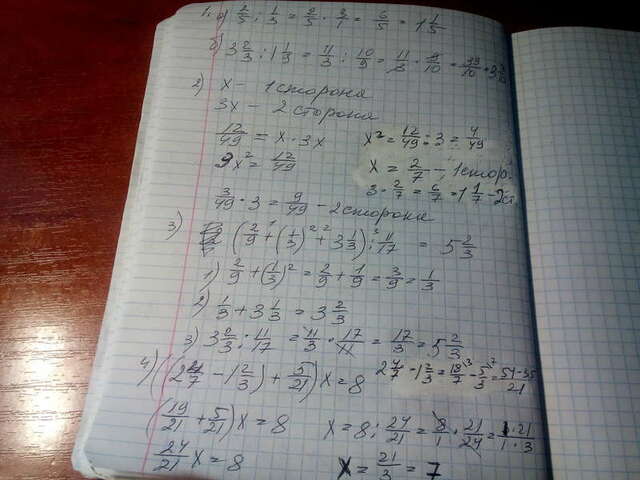 1. а) 2/5 : 1/3 = 2/5 · 3/1 = 6/5 = 1 1/5
б) 3 2/3 : 1 1/9 = 11/3 : 10/9 = 11/3 · 9/10 = 33/10 = 3 3/10
2) x — 1 сторона
3x — 2 сторона
12/49 = x · 3x x² = 12/49 : 3 = 4/49
3x² = 12/49 x = 2/7 — 1 стор.
3 · 2/7 = 6/7 = 1 1/7 – 2 ст.
3/49 · 3 = 9/49 – 2 сторона
3) (2/9 + (1/3)² + 3 1/3) : 11/17 = 5 2/3
1) 2/9 + (1/3)² = 2/9 + 1/9 = 3/9 = 1/3
2) 1/3 + 3 1/3 = 3 2/3
3) 3 2/3 : 11/17 = 11/3 · 17/11 = 17/3 = 5 2/3
4) ((2 4/7 – 1 2/3) + 5/21) x = 8 2 4/7 – 1 2/3 = 18/7 – 5/3 = 54–35/21
(19/21 + 5/21) x = 8 x = 8 : 24/21 = 8/1 · 21/24 = 1·21/1·3
24/21 x = 8 x = 21/3 = 7